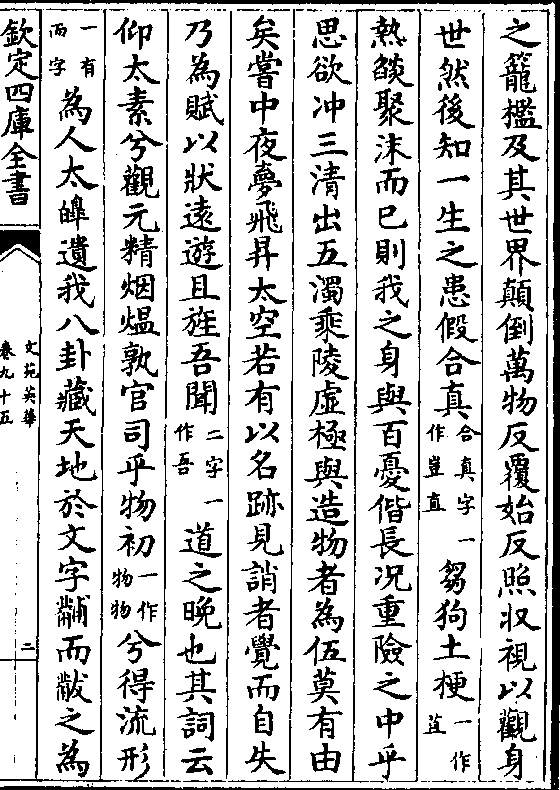 之籠檻及其世界顛倒萬物反覆始反照収視以觀身
世然後知一生之患假合真合真字一作豈直芻狗土梗一作苴
熱燄聚沫而已則我之身與百憂偕長况重險之中乎
思欲冲三清出五濁乘陵虚極與造物者為伍莫有由
矣嘗中夜夢飛昇太空若有以名跡見誚者覺而自失
乃為賦以狀逺遊且旌吾聞二字一作吾道之晚也其詞云
仰太素兮觀元精烟煴孰官司乎物初一作物物兮得流形
一有而字為人太皥遺我八卦藏天地於文字黼而黻之為
欽定四庫全書
文苑英華
卷九十五
二